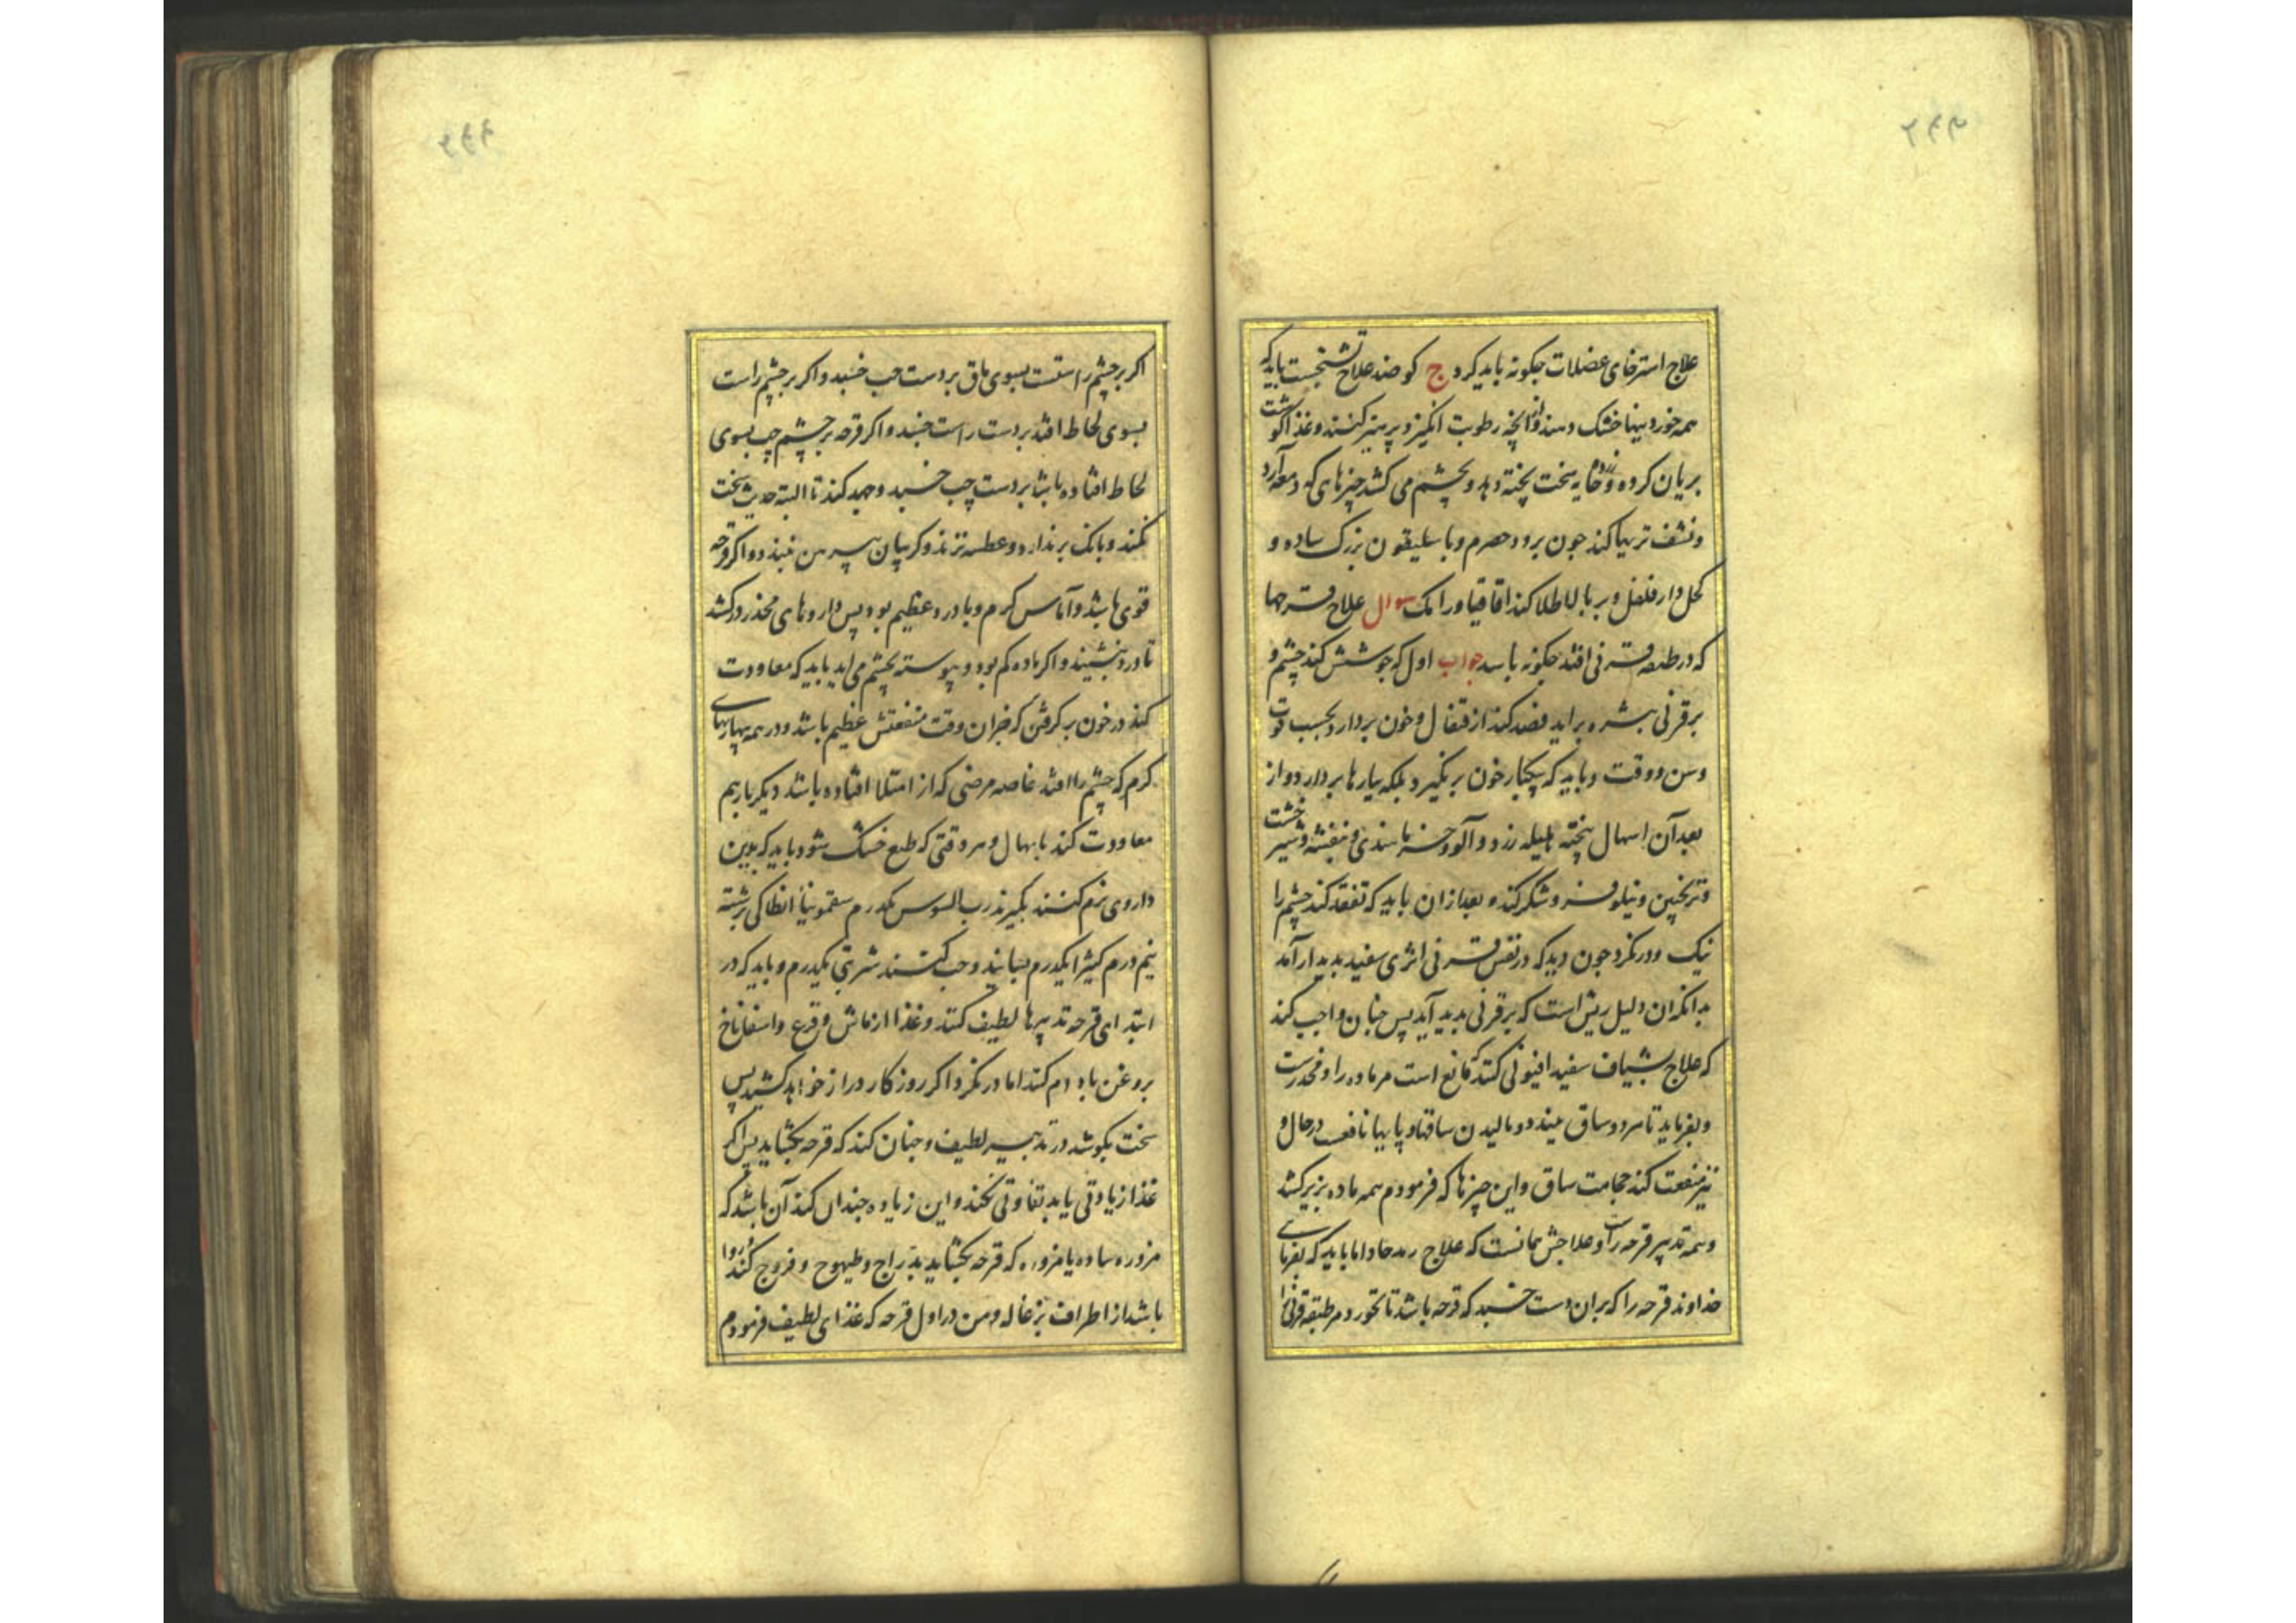 علاج استرخای عضلات جکونه باید کرد ج کو ضد علاج تشنجست باید که
همه خوردنیها خشک دهند و از آنچه رطوبت انکیزد پرهیز کنند و غذا کوشت
بریان کرده و زرده خایه سخت پخته دهد و بچشم می کشد چیزهای که دمعه آرد
و نشف تریها کند جون برود حصرم و باسلیقون بزرک ساده و
کحل دارفلفل و بر بالا طلا کند اقاقیا و رامک سوال علاج قرحها
که در طبقه قرنی افتد جکونه باشد جواب اول که جوشش کند چشم و
بر قرنی بشره براید فصد کند از قیفال و خون بردارد بحسب قوت
و سن و وقت و باید که بیکبار خون برنکیرد بلکه ببارها بردارد و از
بعد آن اسهال پخته هلیله زرد و آلو و خرما هندی و بنفشه و شیرخشت
و ترنجبین و نیلوفر و شکر کند و بعد از ان باید که تفقد کند چشم را
نیک و درنکرد جون دید که در نفس قرنی اثری سفید بدیدار آمد
بدانکه ان دلیل ریش است که بر قرنی بدید آید پس جنان واجب کند
که علاج بشیاف سفید افیونی کند که مانع است مر ماده را و مخدرست
و بفرماید تا هر دو ساق ببندد و مالیدن ساقها و پایها نافعست در حال و
نیز منفعت کند حجامت ساق و این چیزها که فرمودم همه ماده بزیر کشد
و همه تدبیر قرحه راست و علاجش همانست که علاج رمد حاد اما باید که بفرمای
خداوند قرحه را که بران دست خسبد که قرحه باشد تا نخورد مر طبقه قرنی را
اکر بر جشم راستست بسوی ماق بر دست جب خسبد و اکر بر جشم راست
بسوی لحاظ افتد بر دست راست خسبد و اکر قرحه بر جشم چپ بسوی
لحاظ افتاده باشد بر دست چپ خسبد و جهد کند تا البته حدیث سخت
نکند و بانک برندارد و عطسه نزند و کریبان پیرهن نبندد و اکر قرحه
قوی باشد و آماس کرم و با درد عظیم بود پس داروهای مخدر درکشد
تا درد بنشیند و اکر ماده کم بود و پیوسته بچشم می اید باید که معاودت
کند در خون برکرفتن که خیر ان وقت منفعتش عظیم باشد و در همه بیماریهای
کرم که چشم را افتد خاصه مرضی که از امتلا افتاده باشد دیکر بار هم
معاودت کند باسهال و هر وقتی که طبع خشک شود باید که بدین
داروی نرم کنند بکیرند رب السوس یکدرم سقمونیا انطاکی برشته
نیم درم کثیرا یکدرم بسایند و حب کنند شربتی یکدرم و باید که در
ابتدای قرحه تدبیرها لطیف کند و غذا از ماش و قرع و اسفاناخ
بروغن بادام کند اما درنکرد اکر روزکار دراز خواهد کشید پس
سخت بکوشد در تدبیر لطیف و جنان کند که قرحه بکشاید پس اکر
غذا زیادتی یابد تفاوتی نکند و این زیاده جندان کند آن باشد که
مزوره ساده یا مزوره که قرحه بکشاید بدراج و طیهوج و فروج کند و روا
باشد از اطراف بزغاله و من در اول قرحه که غذای لطیف فرمودم